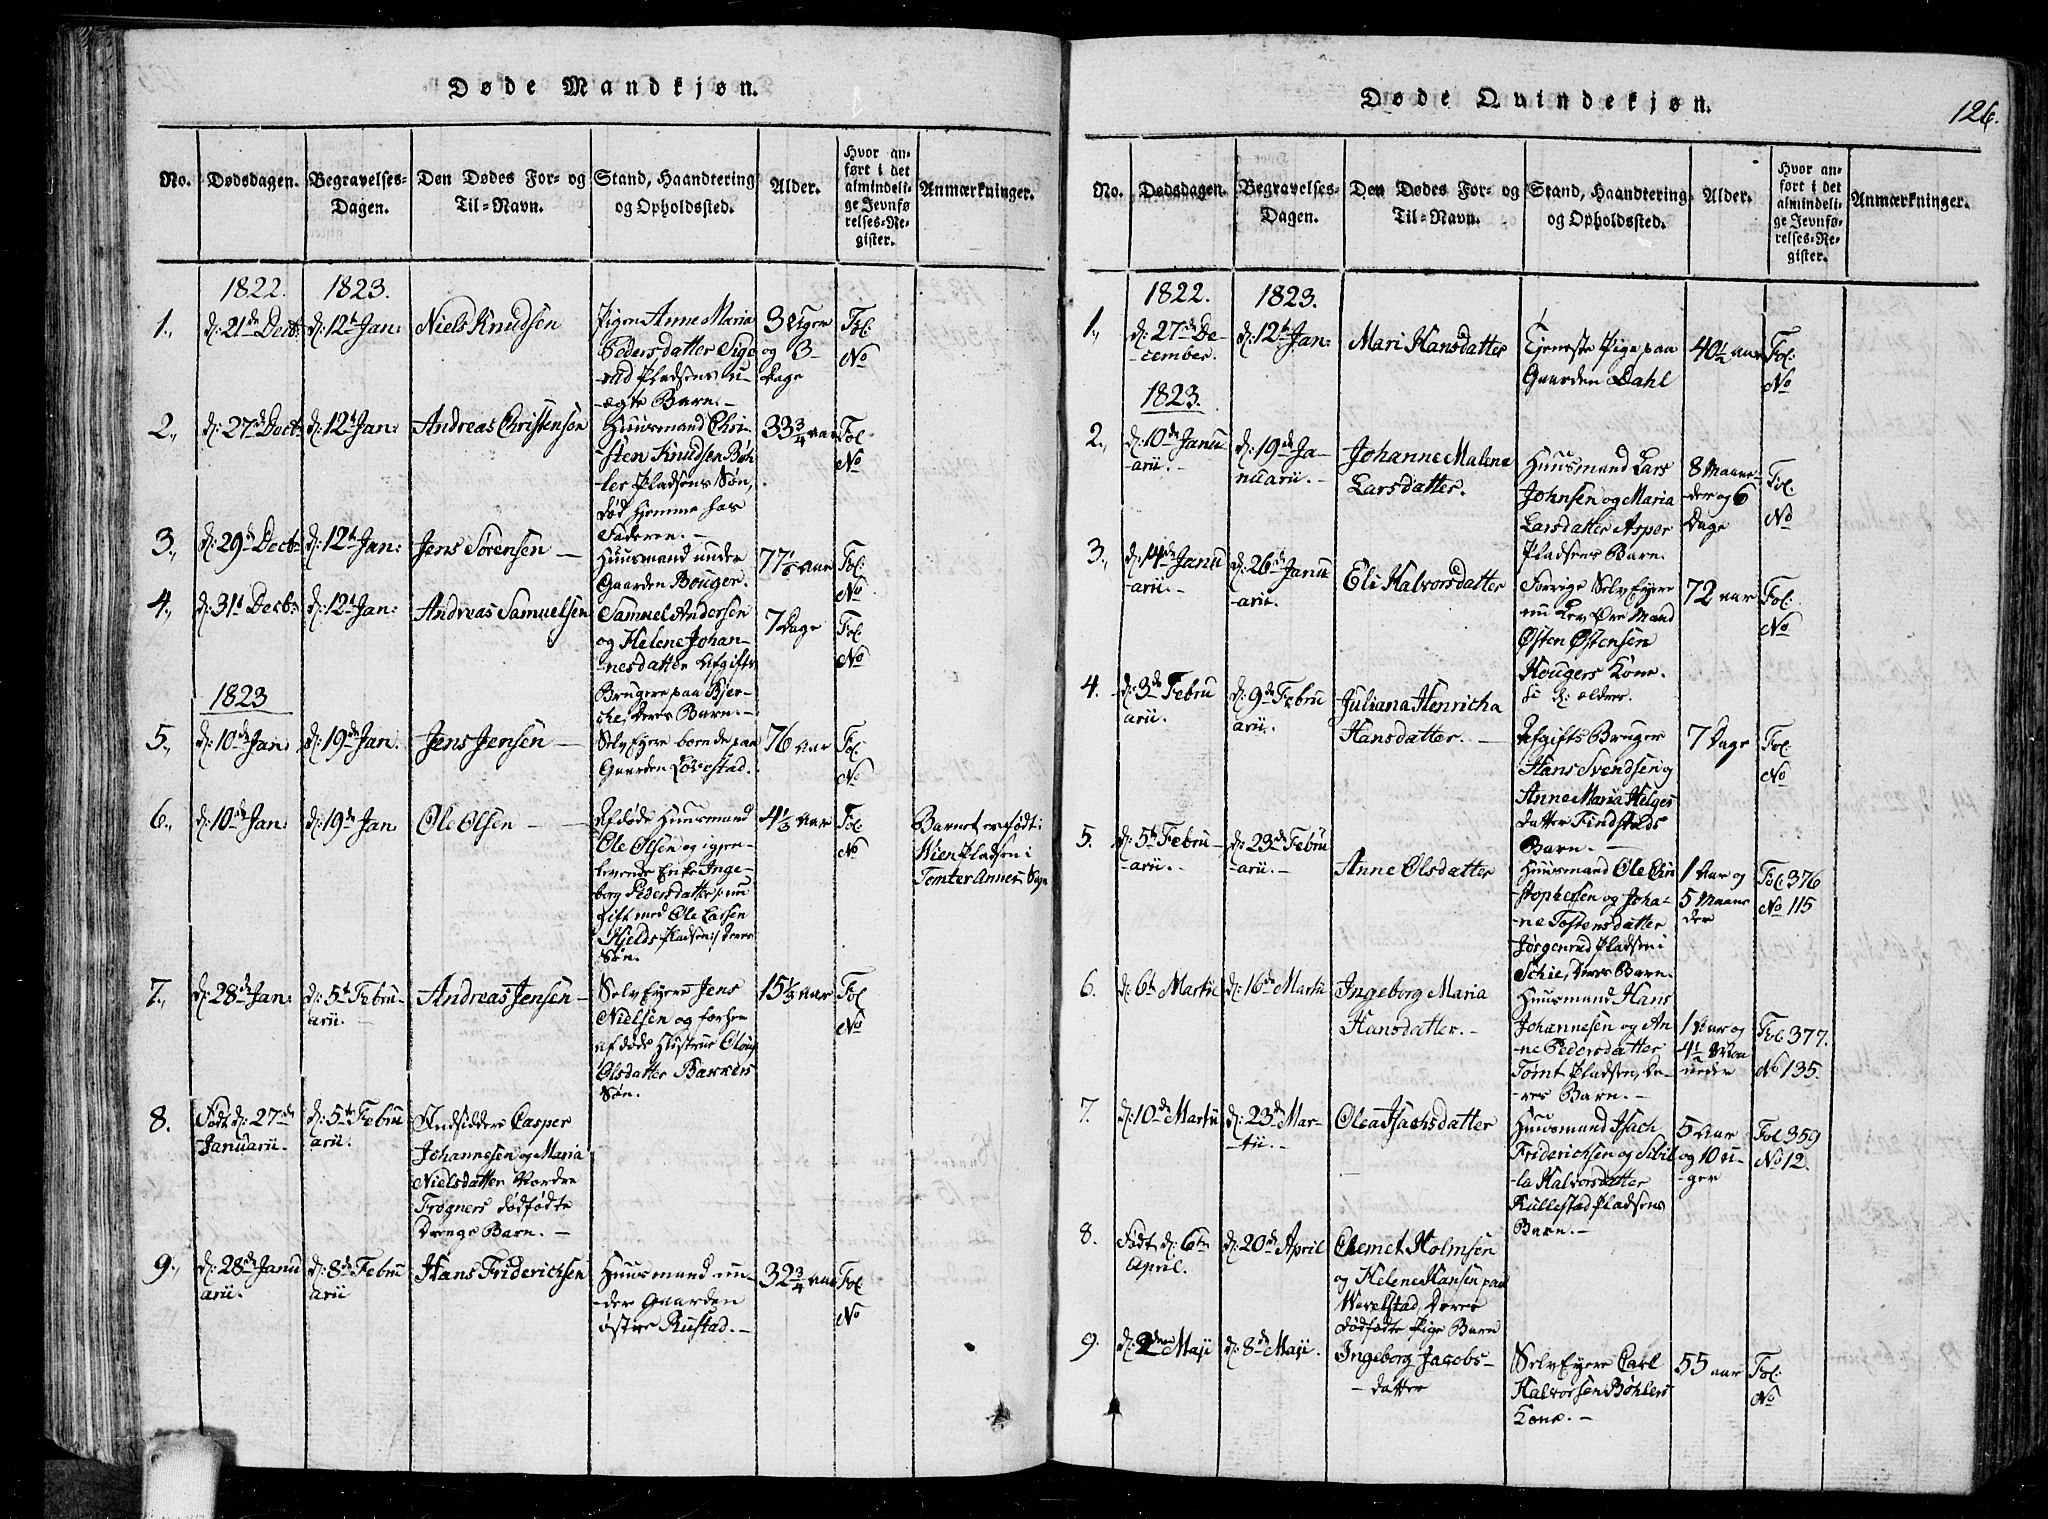 Døde Mandkjøn.
No.
Dødsdagen.
Begravelses-
Dagen.
Den Dødes For- og
Til-Navn.
Stand, Haandtering
og Opholdssted.
Alder.
Hvor an-
ført i det
almindeli-
ge Jevnfø-
relses-Re-
gister.
Anmærkninger.
1822.
1823.
1.,
d: 21de Decb:
d: 12te Jan:
Niels Knudsen
Pigen Anne Maria
Pedersdatter Sige-
rud Pladsens u-
ægte Barn.
3 Uger
og 3
Dage
Fol:
No
2.,
d: 27de Decb:
d: 12te Jan:
Andreas Christensen
Huusmand Chri-
sten Knudsen Bøh-
ler Pladsens Søn,
død hjemme hos
Faderen. —
33 3/4 aar
Fol
No
3.,
d: 29de Decb:
d: 12te Jan:
Jens Sørensen —
Huusmand under
Gaarden Bouger.
Fol:
No
4.,
d: 31t Decb:
d: 12te Jan:
Andreas Samuelsen
Samuel Andersen
og Helene Johan-
nesdatter Afgifts
Brugere paa Kjer-
, deres Barn. —
7 Dage
Fol:
No
1823
5.,
d: 10de Jan:
d: 19de Jan.
Jens Jensen —
Selv Eyere boende paa
Gaarden Løvestad.
76 aar
Fol:
No
6.,
d: 10de Jan:
d: 19de Jan
Ole Olsen —
Afdøde Huusmand
Ole Olsen og igjen-
levende Enke Inge-
borg Pedersdatter /: nu
Gift med Ole Larsen
Hjelds Pladsen :/ deres
Søn.
4 1/3 aar
Fol:
No
Barnet er født i
Pladsen i
Tomter Annex Sogn
7.,
d: 28de Jan:
d: 5te Febru-
arii. —
Andreas Jensen —
Selv Eyere Jens
Nielsen og forhen
afdøde Hustrue
Olsdatter
Søn.
15 1/3 aar
Fol
No
8.
Født d: 27de
Januarii.
d: 5te Febru
arii.
Indsidder Casper
Johannesen og Maria
Nielsdatter Nordre
Frogners dødfødte
Drenge Barn. —
9.,
d: 28de Janu
arii.
d: 8de Febru
arii
Hans Friderichsen
Huusmand un-
der Gaarden
østre Rustad. —
32 3/4 aar
Fol
No
Døde Qvindekjøn.
126.
No.
Dødsdagen.
Begravelses-
Dagen.
Den Dødes For- og
Til-Navn.
Stand, Haandtering
og Opholdssted.
Alder.
Hvor an-
ført i det
almindeli-
ge Jevnfø-
relses-Re-
gister.
Anmærkninger.
1822.
1823.
1.,
d: 27de De-
cember.
d: 12te Jan:
Mari Hansdatter
Tjeneste Pige paa
Gaarden Dahl
40 1/2 aar
Fol:
No
1823.
2.,
d: 10de Janu
arii. —
d: 19de Ja-
nuarii. —
Johanne Malene
Larsdatter.
Huusmand Lars
Johnsen og Maria
Larsdatter Asper
Pladsens Barn.
8 Maane-
der og 6
Dage
Fol:
No
3.,
d: 14de Janu
arii. —
d: 26de Janu
arii.
Eli Halvorsdatter
Forrige Selv Eyere
nu Mand
Østen Østensen
Hougers Kone.
72 aar
Fol:
No
4.
d: 3de Febru
arii.
d: 9de Febru
arii.
Juliana Henricha
Hansdatter. —
Afgifts Bruger
Hans Svendsen og
Anne Maria Helges
datter Findstads
Barn. —
7 Dage
Fol:
No
5.
d: 5te Febru-
arii. —
d: 23de Febru
arii. —
Anne Olsdatter
Huusmand Ole Chri
stophersen og Joha-
ne Tostensdatter
Jørgenrud Pladsen i
Schie, deres Barn.
1 Aar og
5 Maane
der
Fol: 376
No 115
6.
d: 6te Martii
d: 16de Martii
Ingeborg Maria
Hansdatter. —
Huusmand Hans
Johannesen og An-
ne Pedersdatter
Tømt Pladsen, de-
res Barn. —
1 Aar og
4 1/2 Maa
neder
Fol 377.
No 135.
7.
d: 10de Martii
d: 23de Mar-
tii. —
Olea Isachsdatter
Huusmand Isach
Friderichsen og Sibil
la Halvorsdatter
Kullestad Pladsens
Barn. —
5 Aar
og 10 U-
ger
Fol 359
No 12.
8.
Født d: 6te
April.
d: 20de April
Clemet Holmsen
og Helene Hansen paa
Wevelstad, deres
dødfødte Pige Barn
9.
d: 2den Maji
d: 8de Maji.
Ingeborg Jacobs-
datter
Selv Eyere Carl
Halvorsen Bøhlers
Kone. —
55 aar
Fol:
No